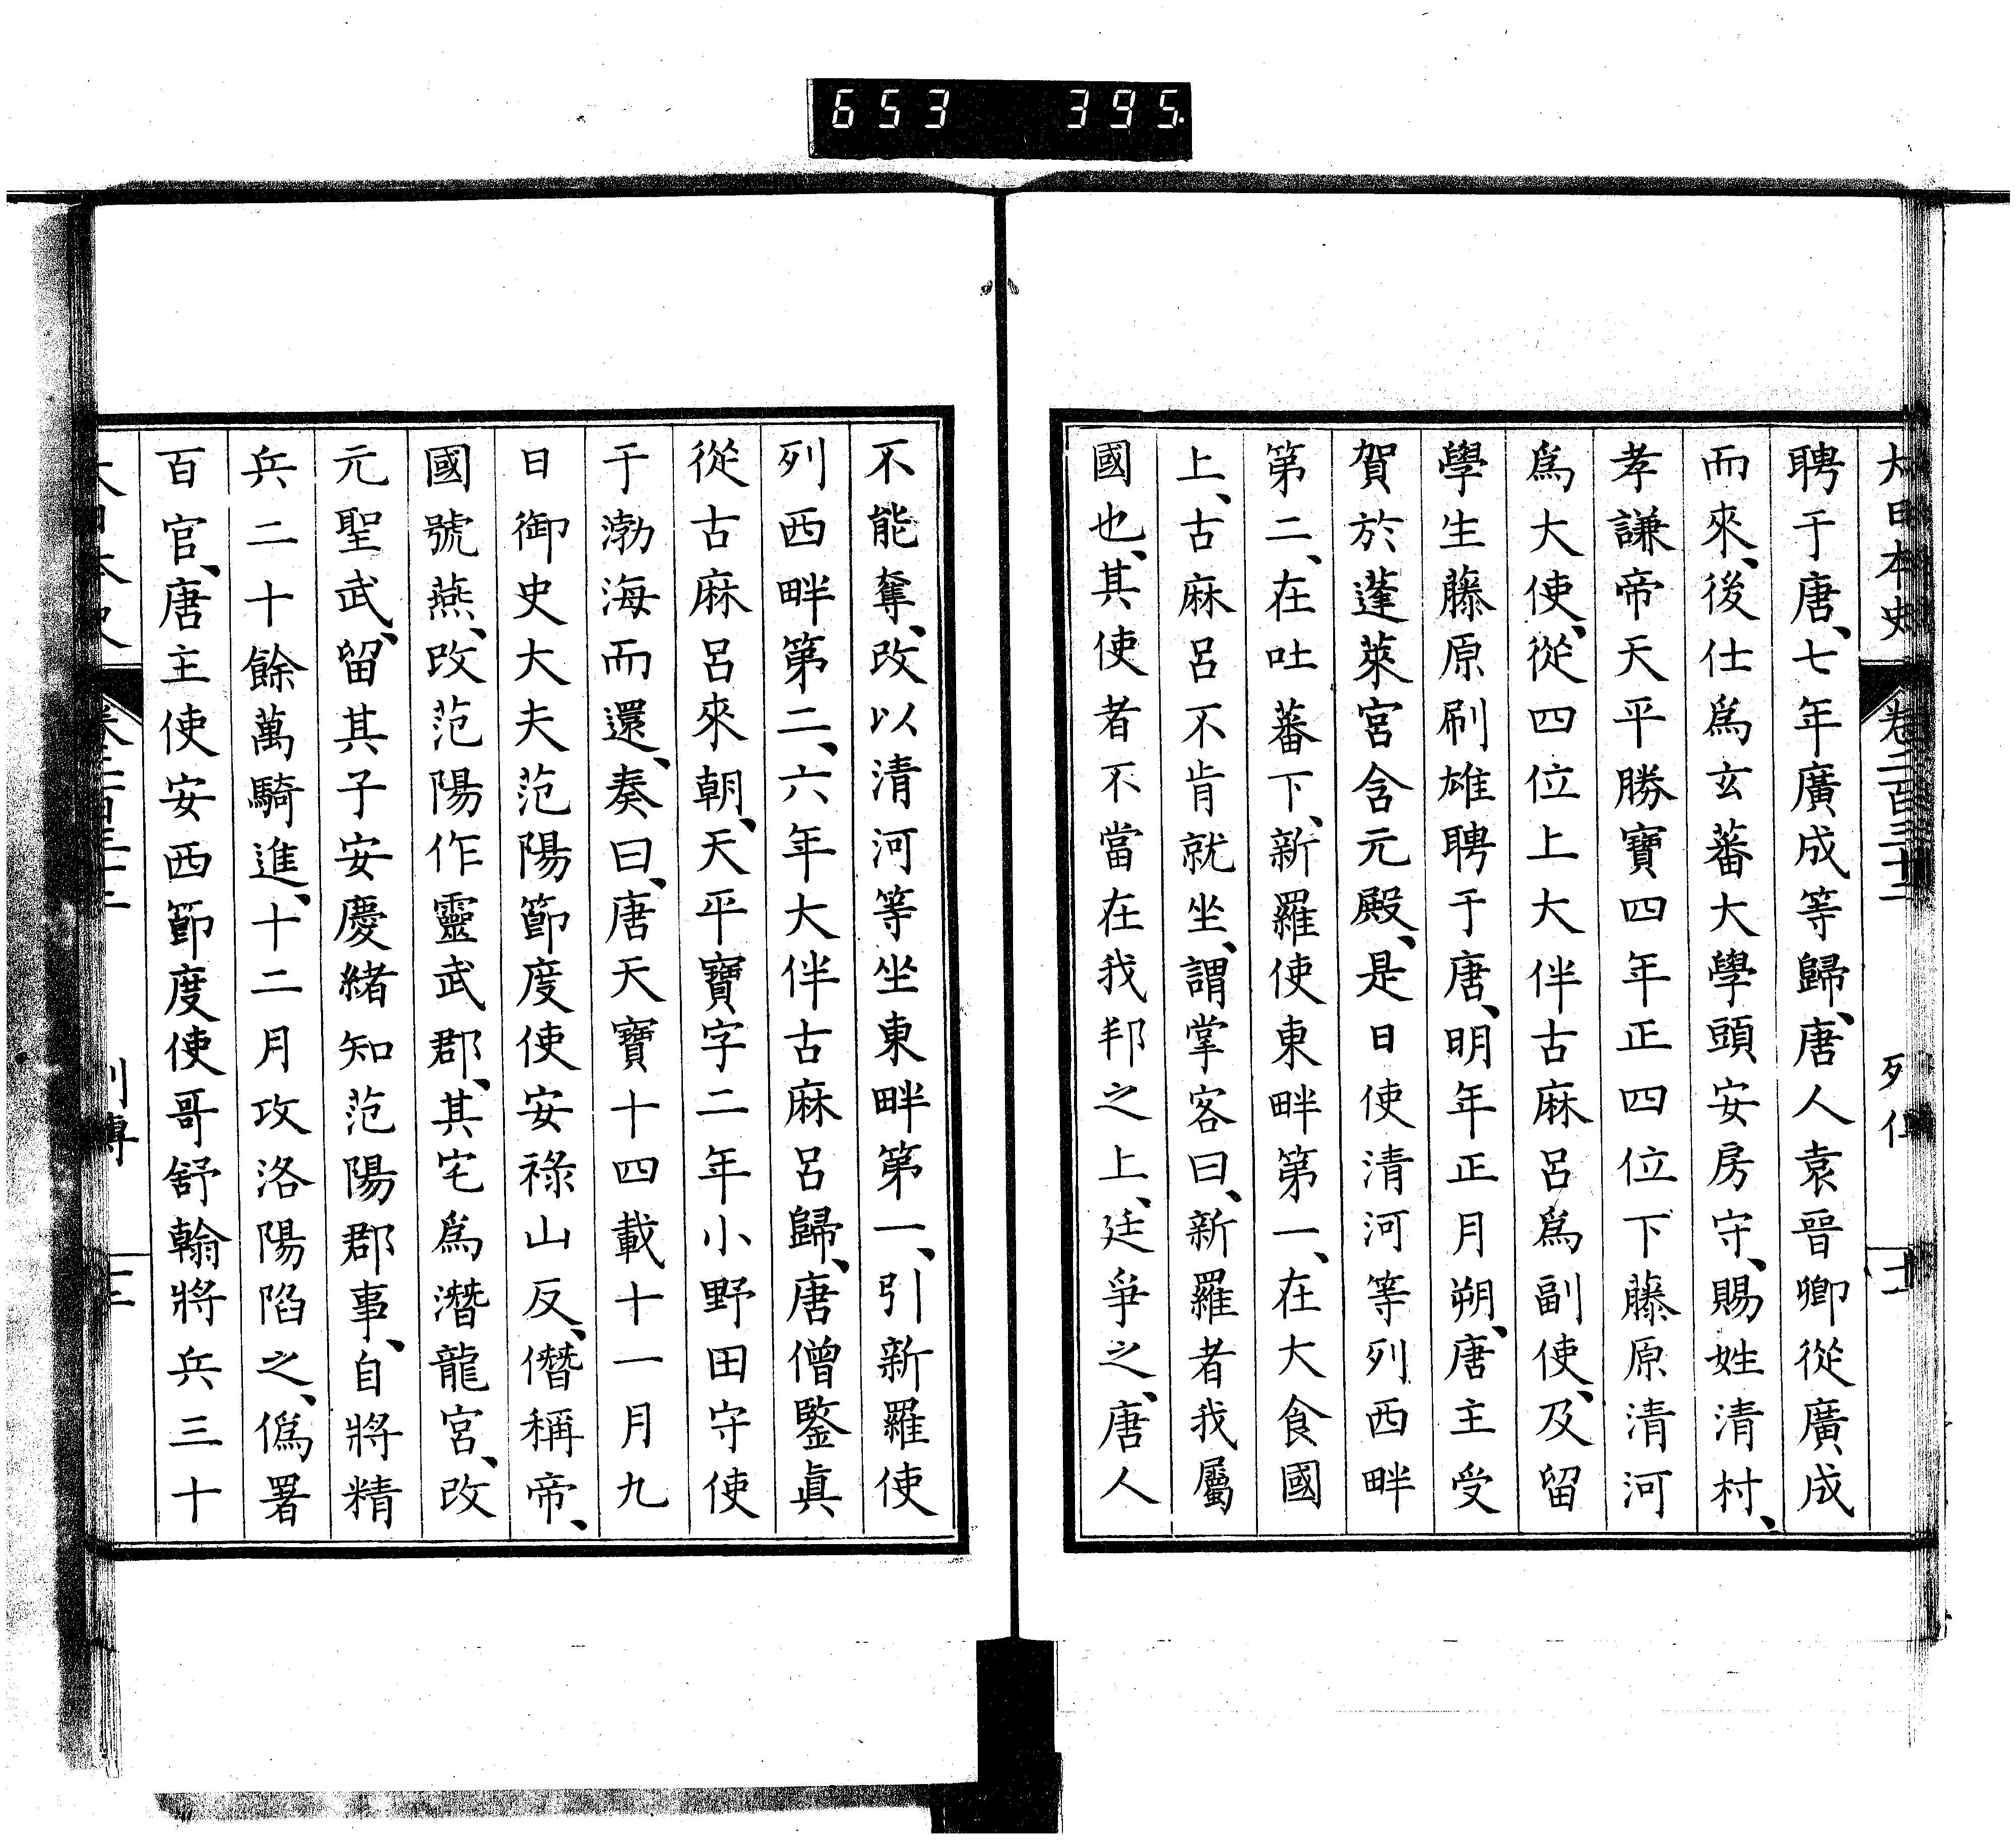 653 395.
大日本史 卷二百三十二 列傳 十二
聘于唐、七年廣成等歸、唐人袁晉卿從廣成
而來、後仕爲玄蕃大學頭安房守、賜姓清村、
孝謙帝天平勝寶四年正四位下藤原清河
爲大使、從四位上大伴古麻呂爲副使、及留
學生藤原刷雄聘于唐、明年正月朔、唐主受
賀於蓬萊宮含元殿、是日使清河等列西畔
第二、在吐蕃下、新羅使東畔第一、在大食國
上、古麻呂不肯就坐、謂掌客曰、新羅者我屬
國也、其使者不當在我邦之上、廷爭之、唐人
不能奪、改以清河等坐東畔第一、引新羅使
列西畔第二、六年大伴古麻呂歸、唐僧鑒眞
從古麻呂來朝、天平寶字二年小野田守使
于渤海而還、奏曰、唐天寶十四載十一月九
日御史大夫范陽節度使安祿山反、僭稱帝、
國號燕、改范陽作靈武郡、其宅爲潛龍宮、改
元聖武、留其子安慶緒知范陽郡事、自將精
兵二十餘萬騎進、十二月攻洛陽陷之、僞署
百官、唐主使安西節度使哥舒翰將兵三十
大日本史 卷二百三十二 列傳